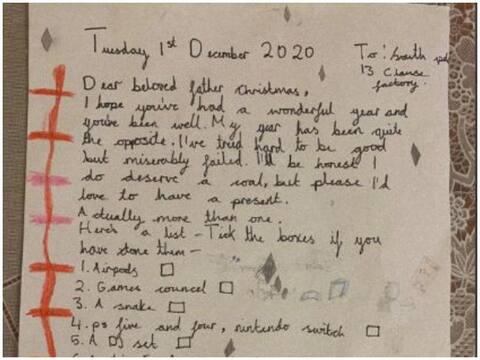 Tuesday 1st December 2020
To: South
13 Clause
factory.
Dear beloved father Christmas,
I hope you've had a wonderful year and
you've been well. My year has been quite
the opposite. I've tried hard to be good
but miserably failed. I'll be honest I
do deserve a coal, but please I'd
love to have a present.
Actually more than one.
Here's a list - Tick the boxes if you
have done them -
1. Airpods
2. Games councel
3. A snake
4. ps five and four, nintendo switch
5. A DJ set